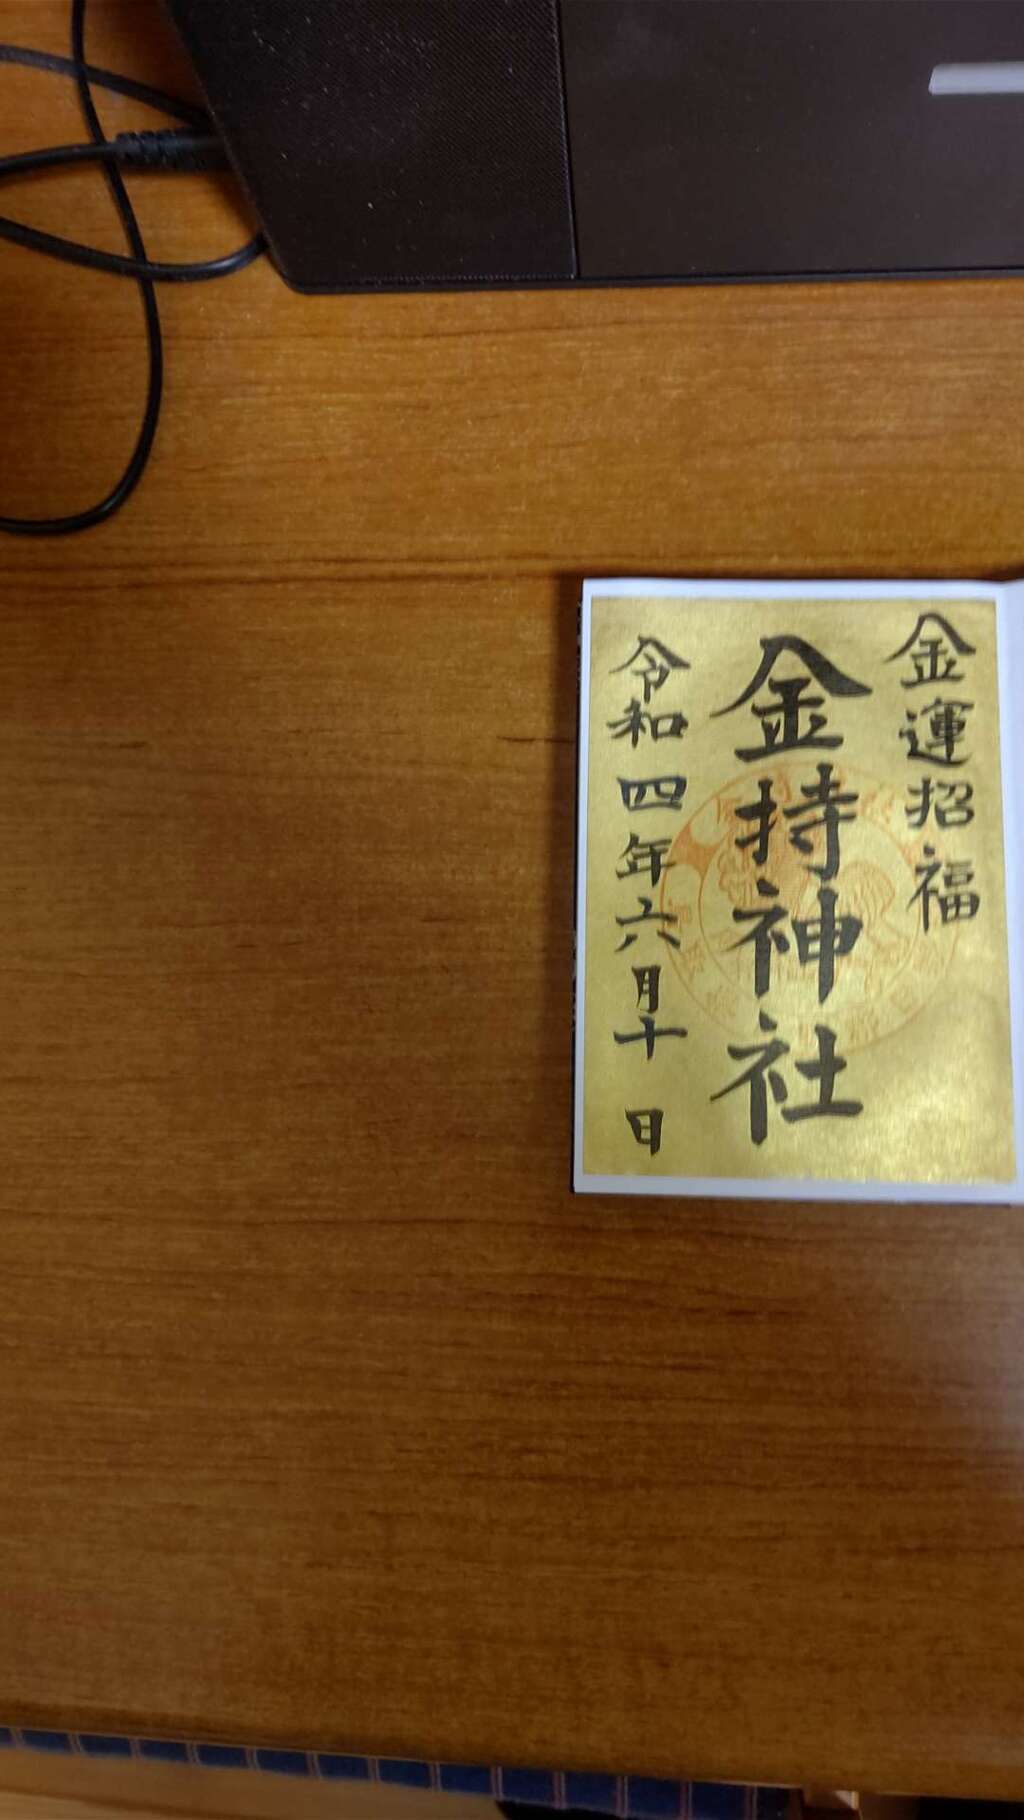 金運招福
金持神社
令和四年六月十日